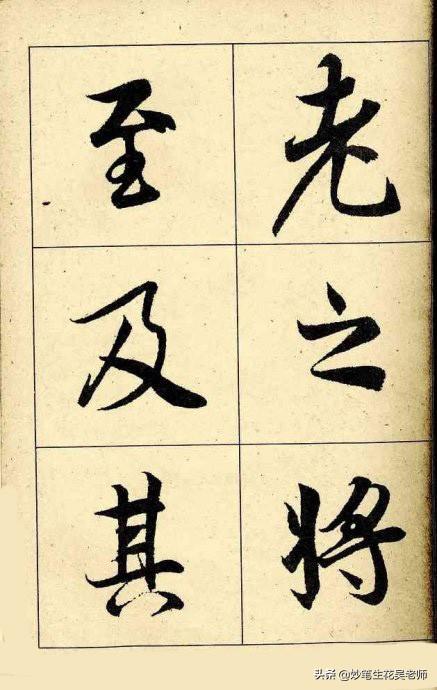 老之将
至及其
头条 @妙笔生花吴老师